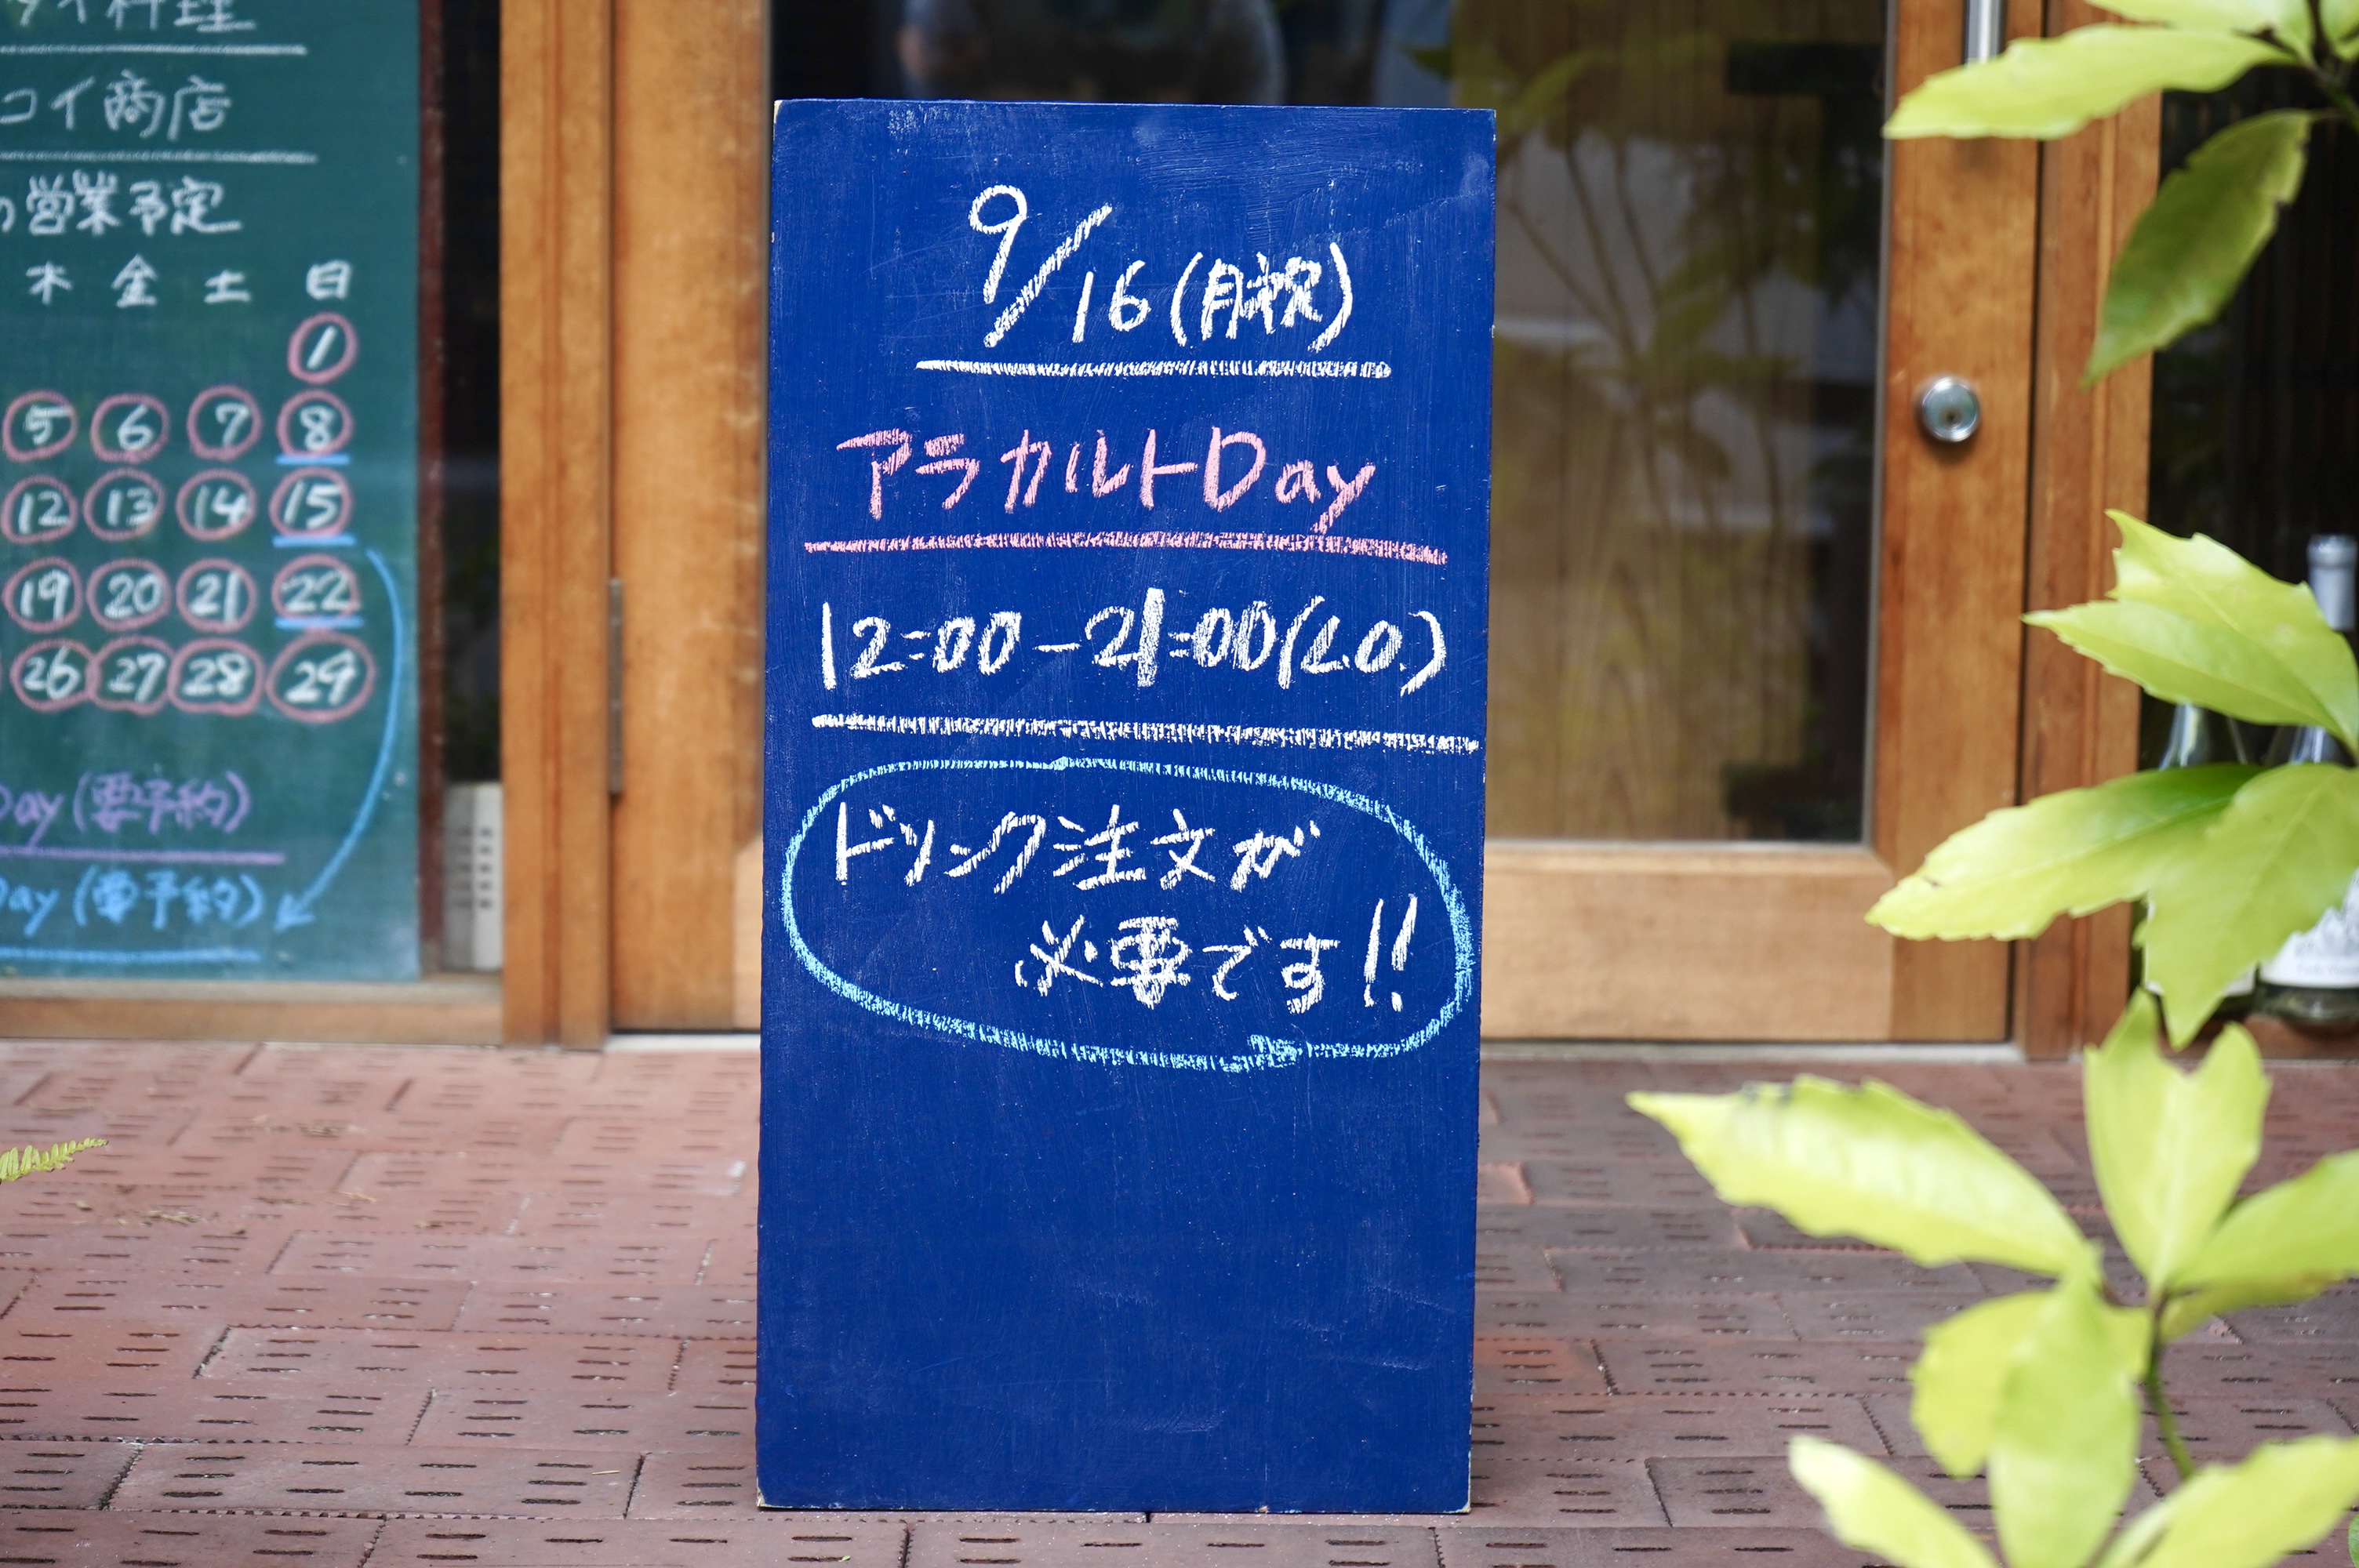 タイ料理
コイ商店
の営業予定
木 金 土 日
1
5 6 7 8
12 13 14 15
19 20 21 22
26 27 28 29
Day (要予約)
Day (要予約)
9/16 (月祝)
アラカルトDay
12:00-21:00(L.O.)
ドリンク注文が
必要です!!